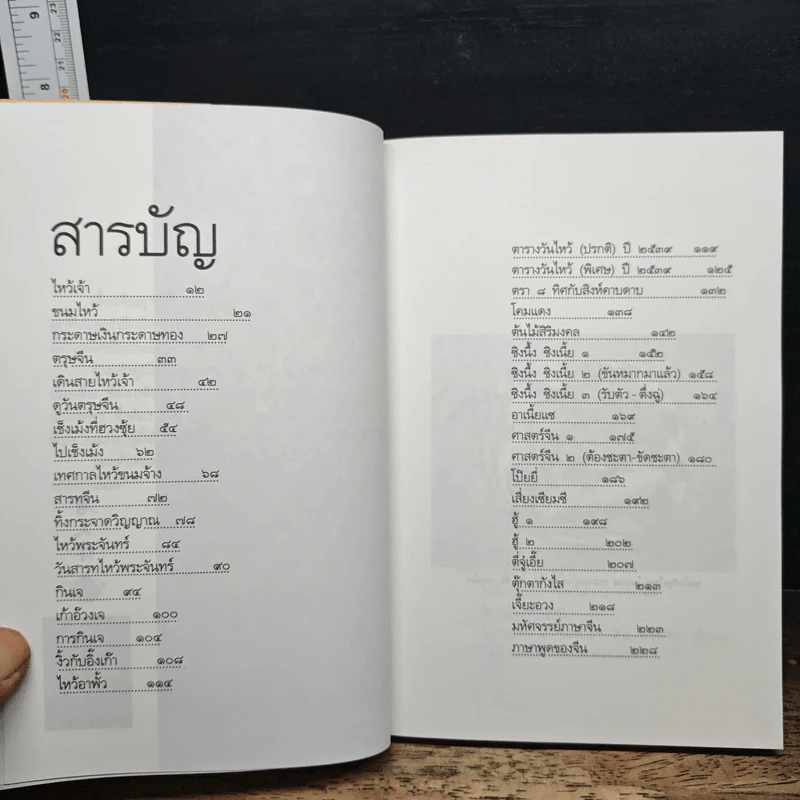 สารบัญ
ไหว้เจ้า ๑๒
ขนมไหว้ ๒๑
กระดาษเงินกระดาษทอง ๒๗
ตรุษจีน ๓๓
เดินสายไหว้เจ้า ๔๒
ดูวันตรุษจีน ๔๘
เช็งเม้งที่ฮวงซุ้ย ๕๔
ไปเช็งเม้ง ๖๒
เทศกาลไหว้ขนมจ้าง ๖๘
สารทจีน ๗๒
ทิ้งกระจาดวิญญาณ ๗๘
ไหว้พระจันทร์ ๘๔
วันสารทไหว้พระจันทร์ ๙๐
กินเจ ๙๔
เก้าอ๊วงเจ ๑๐๐
การกินเจ ๑๐๔
งิ้วกับอิ๊งเก๊า ๑๐๘
ไหว้อาพั้ว ๑๑๔
ตารางวันไหว้ (ปรกติ) ปี ๒๕๓๙ ๑๑๙
ตารางวันไหว้ (พิเศษ) ปี ๒๕๓๙ ๑๒๕
ตรา ๘ ทิศกับสิงห์คาบดาบ ๑๓๒
โคมแดง ๑๓๘
ต้นไม้สิริมงคล ๑๔๒
ซิงนึ้ง ซิงเนี้ย ๑ ๑๕๒
ซิงนึ้ง ซิงเนี้ย ๒ (ขันหมากมาแล้ว) ๑๕๘
ซิงนึ้ง ซิงเนี้ย ๓ (รับตัว - ตึ่งฉู่) ๑๖๔
อาเนี้ยแซ ๑๖๙
ศาสตร์จีน ๑ ๑๗๕
ศาสตร์จีน ๒ (ต้องชะตา-ขัดชะตา) ๑๘๐
โป๊ยยี่ ๑๘๖
เสี่ยงเซียมซี ๑๙๒
ฮู้ ๑ ๑๙๘
ฮู้ ๒ ๒๐๒
ตี่จู่เอี๊ย ๒๐๗
ตุ๊กตากังไส ๒๑๓
เจี๊ยะอวง ๒๑๘
มหัศจรรย์ภาษาจีน ๒๒๓
ภาษาพูดของจีน ๒๒๘
9
8
23
22
21
20